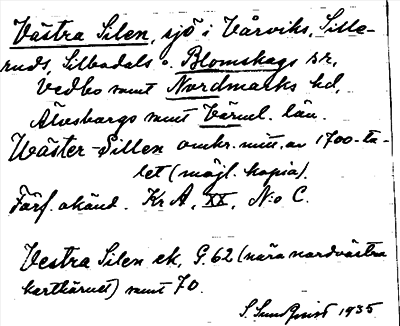 Västra Silen, sjö i Vårviks, Sille-
ruds, Silbodals o. Blomskogs sr,
Vedbo samt Nordmarks hd,
Älvsborgs samt Värml. län.
Wäster-Sillen omkr. mitt. av 1700-ta-
let (möjl. kopia).
Förf. okänd. Kr A, XX, N:o C.
Vestra Silen ek, G. 62 (nära nordvästra
karthörnet) samt 70.
S. Sundqvist 1935